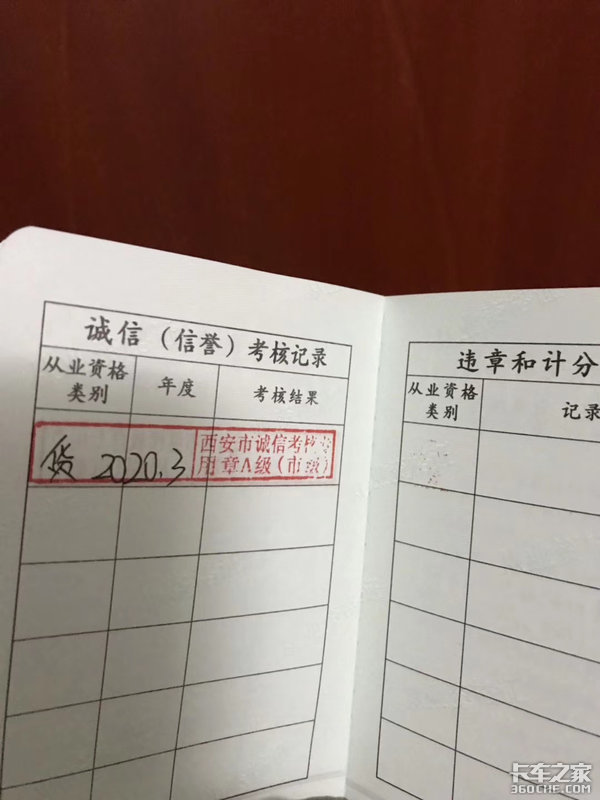 诚信（信誉）考核记录
从业资格类别 年度 考核结果
货 2020.3 西安市诚信考核
用章A级（市级）
违章和计分
从业资格类别 记录
卡车之家
360CHE.COM